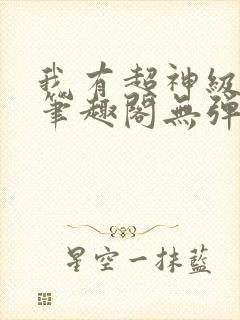 我有超神級
筆趣閣無彈
星空一抹藍